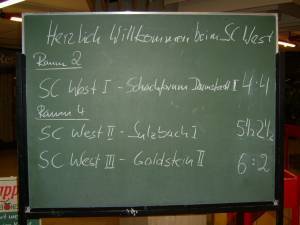 Herzlich Willkommen beim SC West
Raum 2
SC West I - Schachforum Darmstadt II 4:4
Raum 4
SC West II - Sulzbach I 5½:2½
SC West III - Goldstein II 6:2